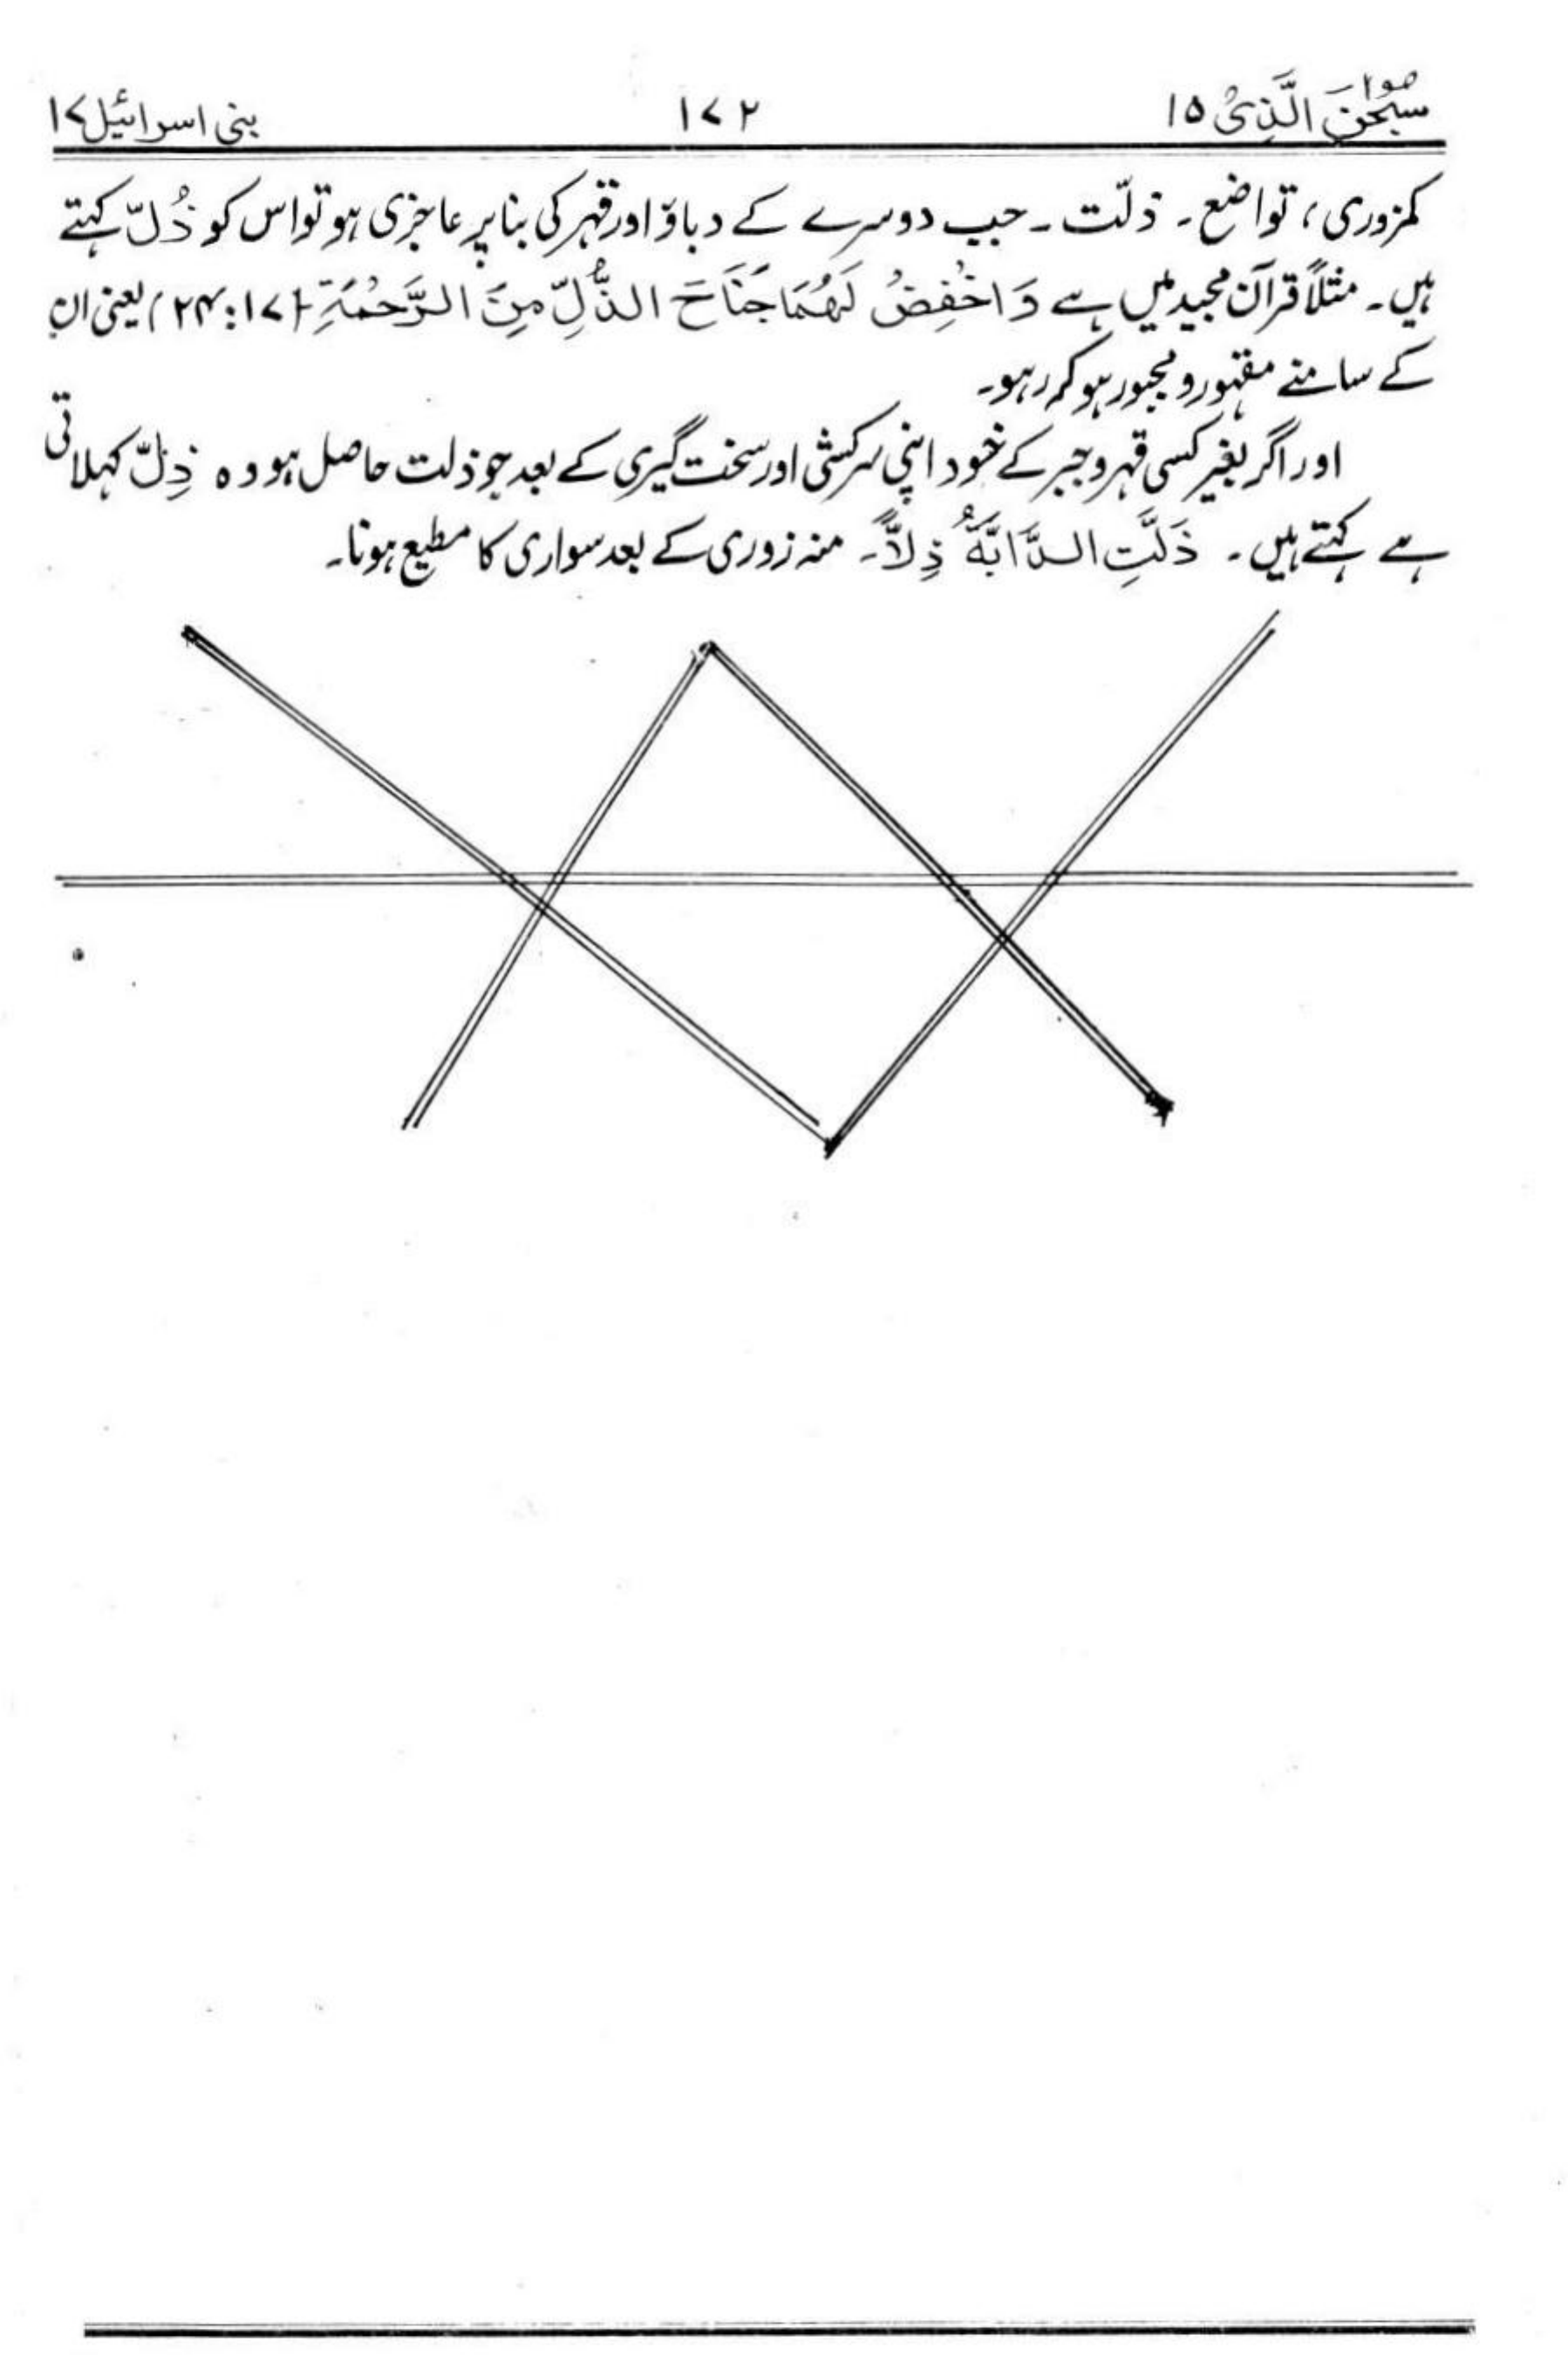 سُبْحٰنَ الَّذِیْ ۱۵ ۱۷۲ بنی اسرائیل ۱۷
کمزوری، تواضع۔ ذلّت۔ جب دوسرے کے دباؤ اور قہر کی بنا پر عاجزی ہو تو اس کو ذُلّ کہتے
ہیں۔ مثلاً قرآن مجید میں ہے وَاخْفِضْ لَهُمَا جَنَاحَ الذُّلِّ مِنَ الرَّحْمَةِ (۱۷:۲۴) یعنی ان
کے سامنے مقہور و مجبور ہو کر رہو۔
اور اگر بغیر کسی قہر و جبر کے خود اپنی سرکشی اور سخت گیری کے بعد جو ذلت حاصل ہو وہ ذِلّ کہلاتی
ہے کہتے ہیں۔ ذَلَّتِ الدَّابَّةُ ذِلًّا۔ منہ زوری کے بعد سواری کا مطیع ہونا۔